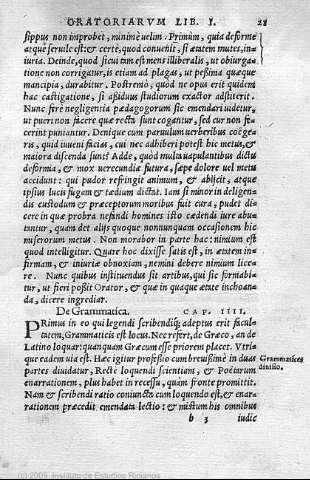 ORATORIARVM LIB. I. 28
sippus non improbet, minimè uelim. Primùm, quia deforme
atque seruile est: & certè, quod conuenit, si ætatem mutes, in-
iuria. Deinde, quod si cui tam est mens illiberalis, ut obiurga-
tione non corrigatur, is etiam ad plagas, ut peßima quæque
mancipia, durabitur. Postremò, quòd ne opus erit quidem
hac castigatione, si aßiduus studiorum exactor adstiterit.
Nunc ferè negligentia pædagogorum sic emendari uidetur,
ut pueri non facere quæ recta sunt cogantur, sed cur non fe-
cerint puniantur. Denique cum paruulum uerberibus coëge-
ris, quid iuueni facias, cui nec adhiberi potest hic metus, &
maiora discenda sunt? Adde, quòd multa uapulantibus dictu
deformia, & mox uerecundiæ futura, sæpe dolore uel metu
accidunt: qui pudor refringit animum, & abijcit, atque
ipsius lucis fugam & tædium dictat. Iam si minor in deligen-
dis custodum & præceptorum moribus fuit cura, pudet di-
cere in quæ probra nefandi homines isto cædendi iure abu-
tantur, quàm det alijs quoque nonnunquam occasionem hic
miserorum metus. Non morabor in parte hac: nimium est
quod intelligitur. Quare hoc dixisse satis est, in ætatem in-
firmam, & iniuriæ obnoxiam, nemini debere nimium lice-
re. Nunc quibus instituendus sit artibus, qui sic formabi-
tur, ut fieri poßit Orator, & quæ in quaque ætate inchoan-
da, dicere ingrediar.
De Grammatica. CAP. IIII.
PRimus in eo qui legendi scribendiq; adeptus erit facul-
tatem, Grammaticis est locus. Nec refert, de Græco, an de
Latino loquar: quanquam Græcum esse priorem placet. Vtri-
que eadem uia est. Hæc igitur profeßio cum breuißimè in duas
partes diuidatur, Rectè loquendi scientiam, & Poëtarum
enarrationem, plus habet in recessu, quàm fronte promittit.
Nam & scribendi ratio coniuncta cum loquendo est, & enar-
rationem præcedit emendata lectio: & mistum his omnibus
Grammatices
diuisio.
b 3 iudic
(c) 2009, Instituto de Estudios Riojanos